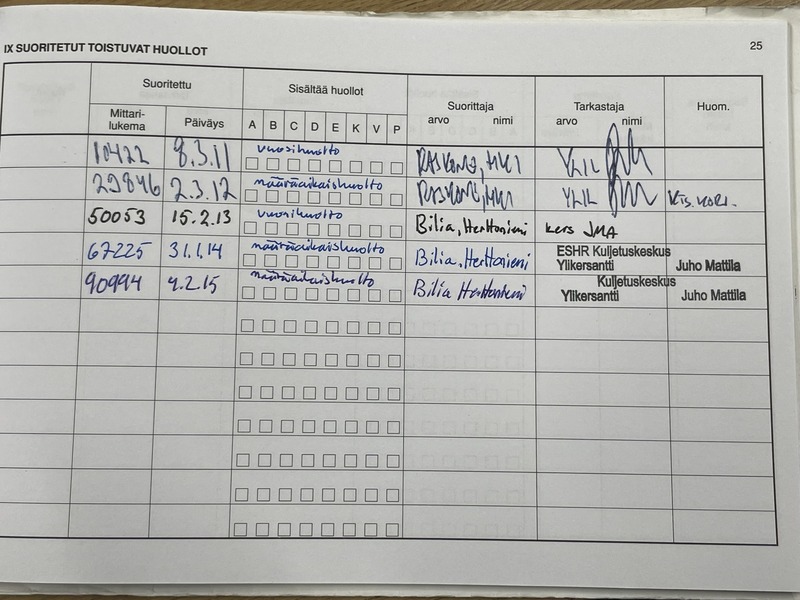 IX SUORITETUT TOISTUVAT HUOLLOT 25
Suoritettu Sisältää huollot Suorittaja Tarkastaja Huom.
arvo nimi arvo nimi
Mittari-
lukema Päiväys A B C D E K V P
10422 8.3.11 vuosihuolto RASKONE, HKI YLIL
29846 2.3.12 määräaikaishuolto RASKONE, HKI YLIL
50053 15.2.13 vuosihuolto Bilia, Herttoniemi kers JMA
67225 31.1.14 määräaikaishuolto Bilia, Herttoniemi ESHR Kuljetuskeskus
Ylikersantti Juho Mattila
90994 4.2.15 määräaikaishuolto Bilia Herttoniemi Kuljetuskeskus
Ylikersantti Juho Mattila